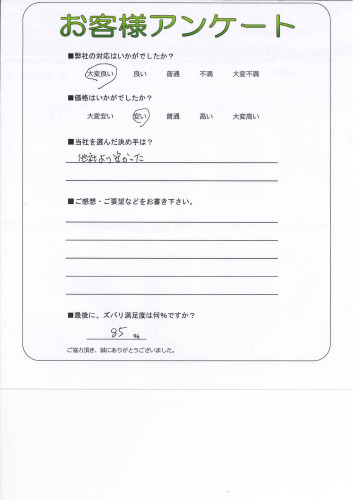 お客様アンケート
■弊社の対応はいかがでしたか？
大変良い 良い 普通 不満 大変不満
■価格はいかがでしたか？
大変安い 安い 普通 高い 大変高い
■当社を選んだ決め手は？
他社より安かった
■ご感想・ご要望などをお書き下さい。
■最後に、ズバリ満足度は何%ですか？
85 %
ご協力頂き、誠にありがとうございました。